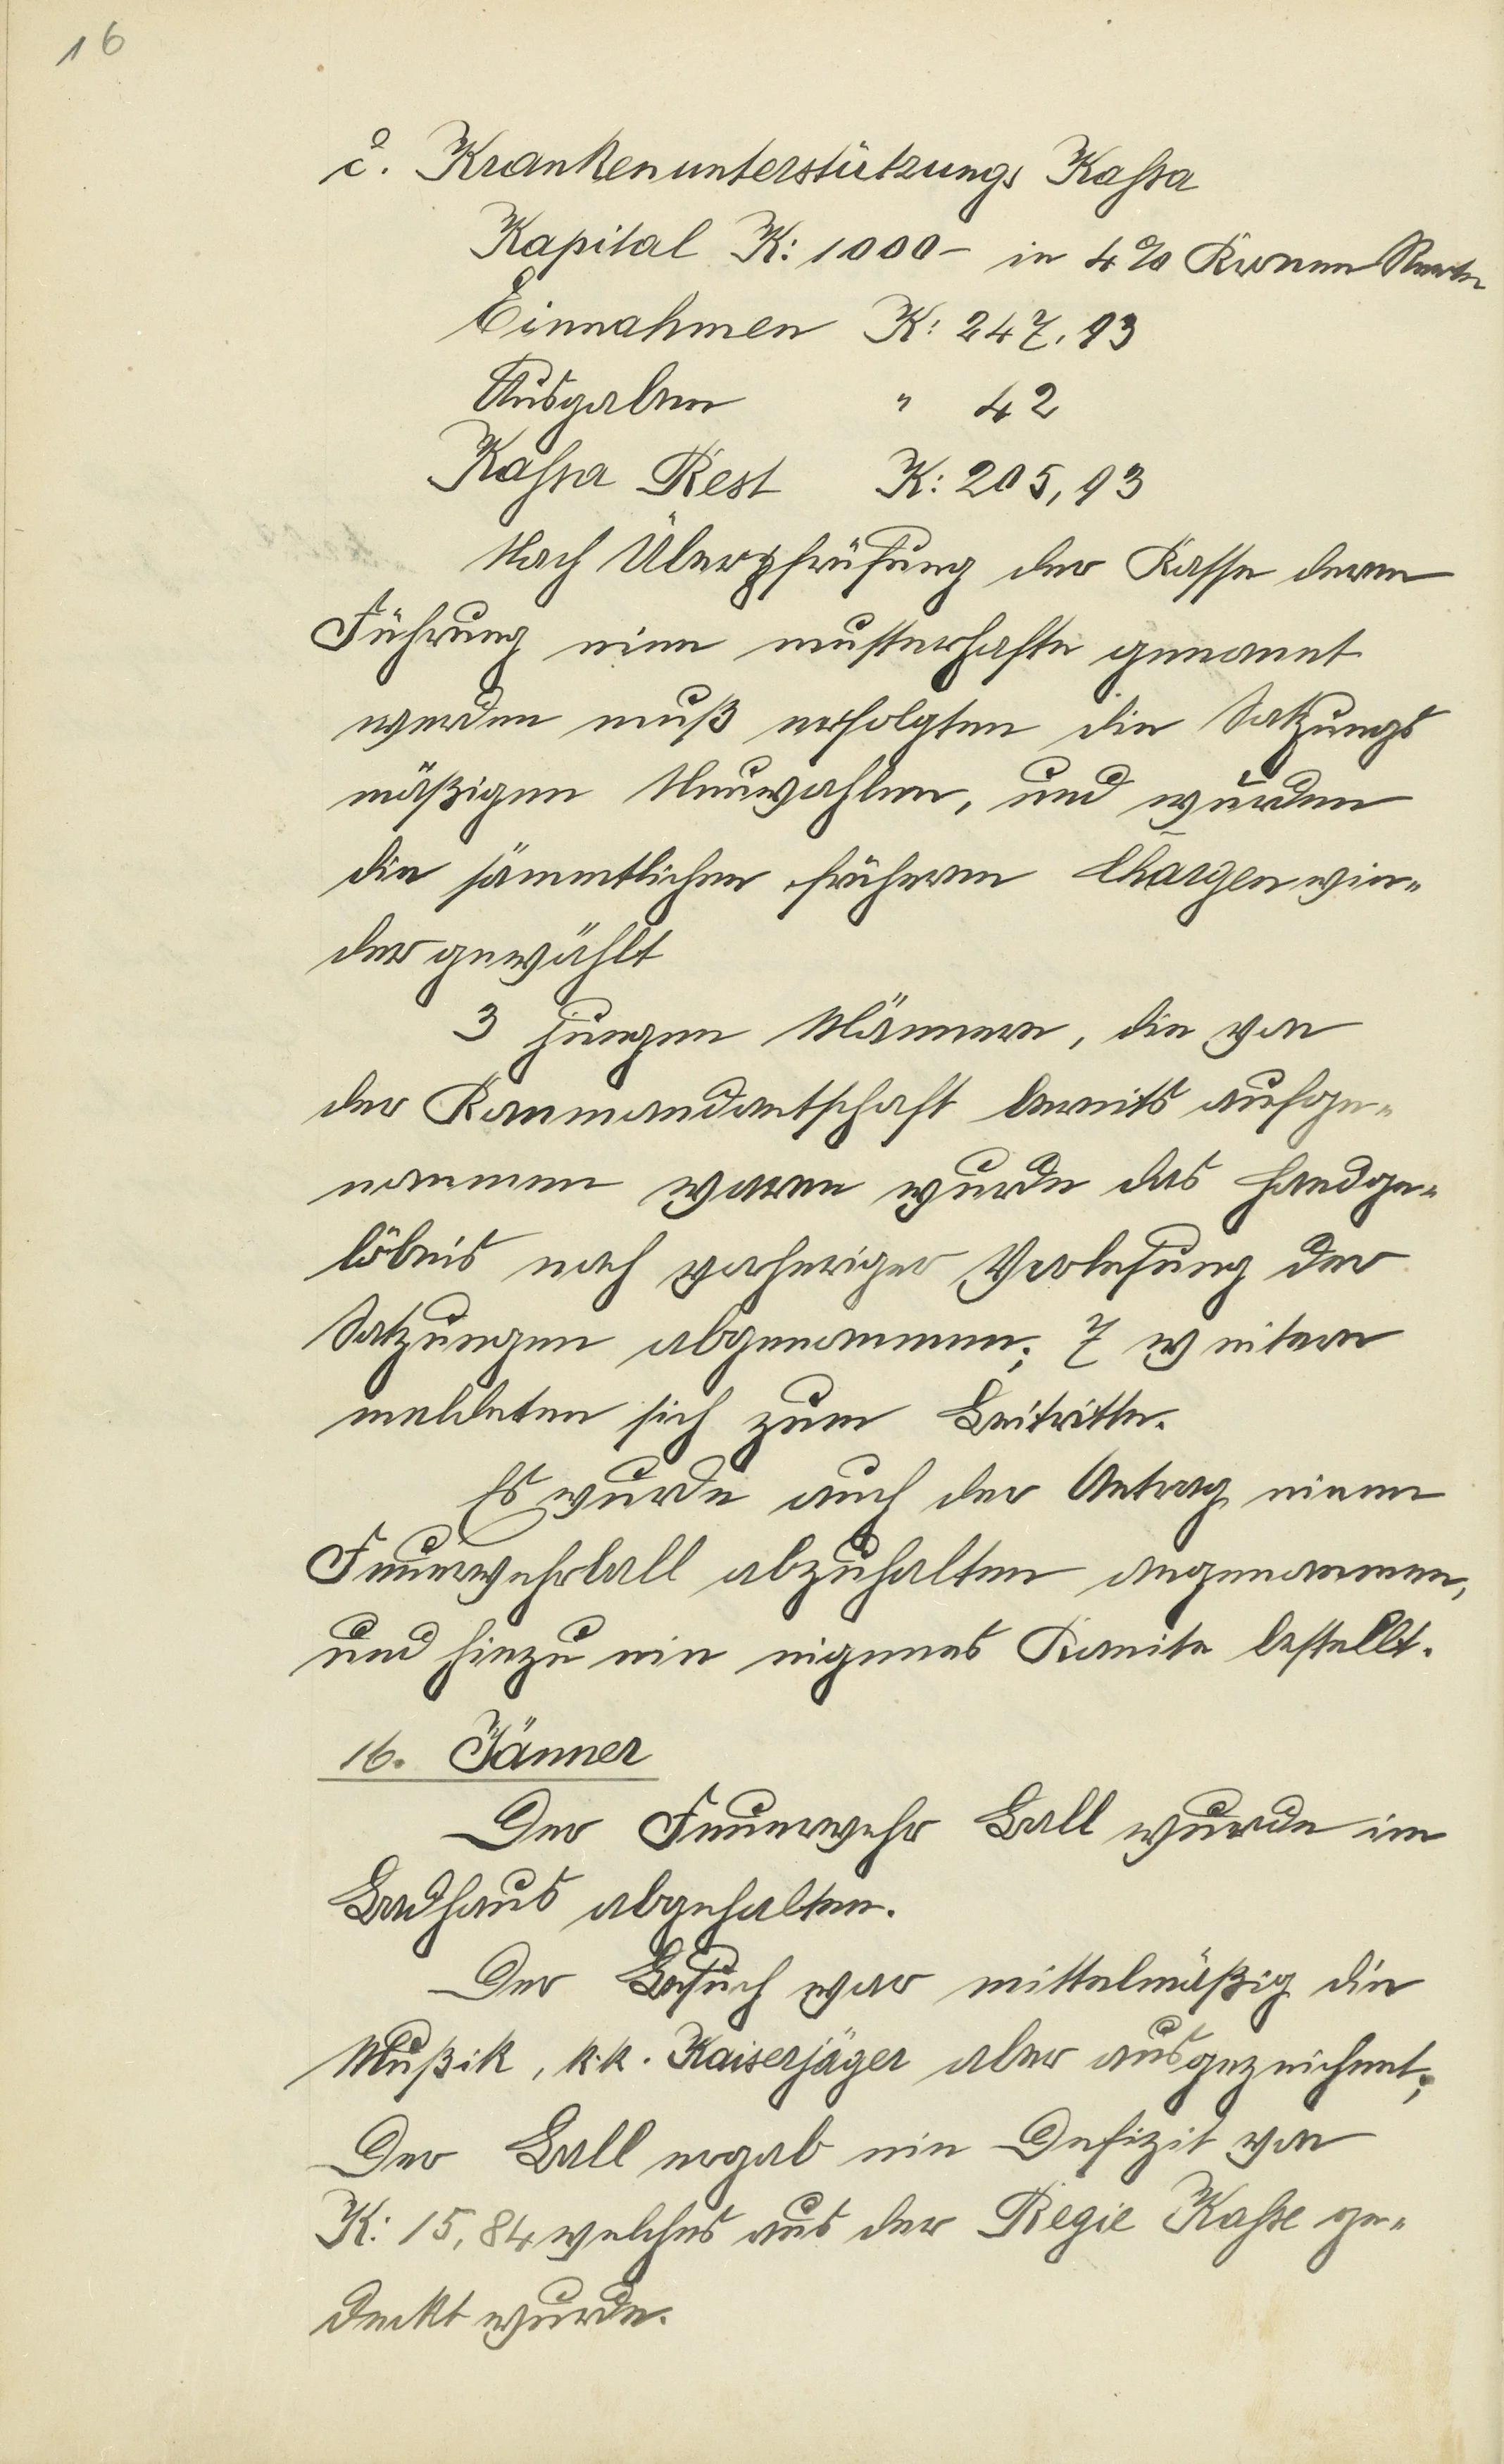 16
c. Krankenunterstützungs Kassa
Kapital K: 1000– in 4% Kronen Rente
Einnahmen K: 247.93
Ausgaben " 42
Kassa Rest K: 205,93
Nach Überprüfung der Kasse deren
Führung eine musterhafte genannt
werden muß erfolgten die Satzungs
mäßigen Neuwahlen, und wurden
die sämmtlichen früheren Chargen wie„
der gewählt
3 jungen Männern, die von
der Kommandantschaft bereits aufge„
nommen waren wurde das Handge„
löbnis nach vorheriger Verlesung der
Satzungen abgenommen; 7 weitere
meldeten sich zum Beitritte.
Es wurde auch der Antrag einen
Feuerwehrball abzuhalten angenommen,
und hiezu ein eigenes Komite bestellt.
16. Jänner
Der Feuerwehr Ball wurde im
Badhaus abgehalten.
Der Besuch war mittelmäßig die
Mußik, k.k. Kaiserjäger aber ausgezeichnet;
Der Ball ergab ein Defizit von
K: 15,84 welches aus der Regie Kasse ge„
deckt wurde.